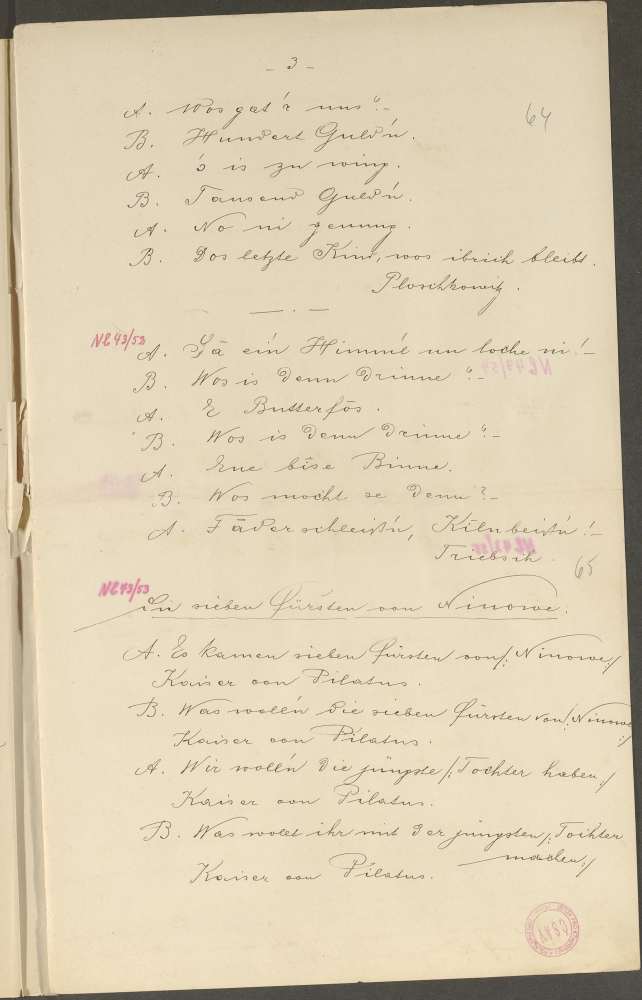 - 3 -
64
A. Wos gat'r uns?-
B. Hundert Guld'n.
A. 's is zu wing.
B. Tausend Guld'n.
A. No ni genung.
B. Dos letzte Kind, wos ibrich bleibt.
Ploschkowitz.
NL 43/53
A. Gā ein Himmel un loche ni!-
B. Wos is denn drinne?-
A. E Butterfōs.
B. Wos is denn drinne?-
A. Ene bīse Binne.
B. Wos mocht se denn?-
A. Fāderschleiß'n, Kīlnbeiß'n!-
Triebsch.
65
NL 43/53
Die sieben Fürsten von Ninowe.
A. Es kamen sieben Fürsten von /: Ninowe :/
Kaiser von Pilatus.
B. Was woll'n die sieben Fürsten von /: Ninowe :/
Kaiser von Pilatus.
A. Wir woll'n die jüngste /: Tochter haben :/
Kaiser von Pilatus.
B. Was wollt ihr mit der jüngsten /: Tochter
machen :/
Kaiser von Pilatus.
ČSAV